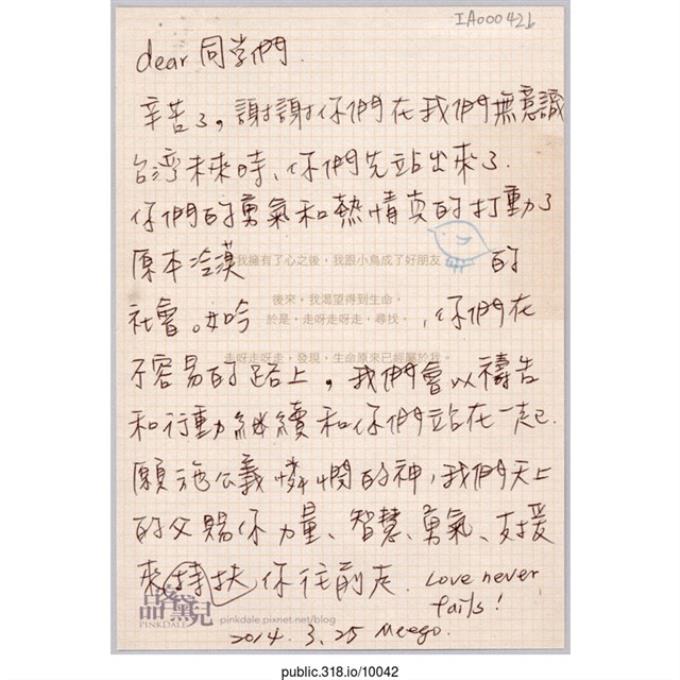 IA000426
dear 同学們.
辛苦了，謝謝你們在我們無意識
台湾未來時、你們先站出來了.
你們的勇氣和熱情真的打動了
原本冷漠 的
我擁有了心之後，我跟小鳥成了好朋友
後來，我渴望得到生命，
社會。如吟 ，你們在
於是，走呀走呀走，尋找。
走呀走呀走，發現，生命原來已經屬於我。
不容易的路上，我們會以禱告
和行動繼續和你們站在一起.
願施公義憐憫的神，我們天上
的父賜你力量、智慧、勇氣、支援
來扶持你往前走. Love never
fails!
品客黛兒
PINKDALE pinkdale.pixnet.net/blog
2014. 3. 25 Meego.
public.318.io/10042